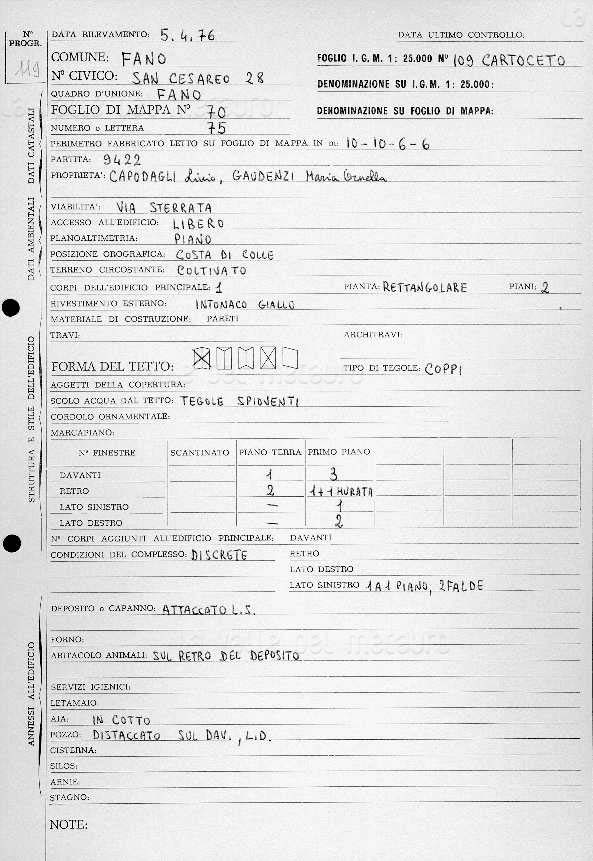 Nº PROGR. 119
DATA RILEVAMENTO: 5.4.76 DATA ULTIMO CONTROLLO:
COMUNE: FANO FOGLIO I.G.M. 1: 25.000 Nº 109 CARTOCETO
Nº CIVICO: SAN CESAREO 28 DENOMINAZIONE SU I.G.M. 1: 25.000:
QUADRO D'UNIONE: FANO
FOGLIO DI MAPPA Nº 70 DENOMINAZIONE SU FOGLIO DI MAPPA:
NUMERO o LETTERA 75
PERIMETRO FABBRICATO LETTO SU FOGLIO DI MAPPA IN m: 10-10-6-6
PARTITA: 9422
PROPRIETA': CAPODAGLI Livio, GAUDENZI Maria Ornella
DATI AMBIENTALI - DATI CATASTALI
VIABILITA': VIA STERRATA
ACCESSO ALL'EDIFICIO: LIBERO
PLANOALTIMETRIA: PIANO
POSIZIONE OROGRAFICA: COSTA DI COLLE
TERRENO CIRCOSTANTE: COLTIVATO
CORPI DELL'EDIFICIO PRINCIPALE: 1 PIANTA: RETTANGOLARE PIANI: 2
RIVESTIMENTO ESTERNO: INTONACO GIALLO
MATERIALE DI COSTRUZIONE: PARETI
TRAVI: ARCHITRAVI:
FORMA DEL TETTO: TIPO DI TEGOLE: COPPI
AGGETTI DELLA COPERTURA:
SCOLO ACQUA DAL TETTO: TEGOLE SPIOVENTI
CORDOLO ORNAMENTALE:
MARCAPIANO:
STRUTTURA E STILE DELL'EDIFICIO
Nº FINESTRE SCANTINATO PIANO TERRA PRIMO PIANO
DAVANTI 1 3
RETRO 2 1+1 MURATA
LATO SINISTRO — 1
LATO DESTRO — 2
Nº CORPI AGGIUNTI ALL'EDIFICIO PRINCIPALE: DAVANTI
CONDIZIONI DEL COMPLESSO: DISCRETE RETRO
LATO DESTRO
LATO SINISTRO 1 A 1 PIANO, 2 FALDE
DEPOSITO o CAPANNO: ATTACCATO L.S.
FORNO:
ABITACOLO ANIMALI: SUL RETRO DEL DEPOSITO
SERVIZI IGIENICI:
LETAMAIO
AJA: IN COTTO
POZZO: DISTACCATO SUL DAV., L.D.
CISTERNA:
SILOS:
ARNIE:
STAGNO:
ANNESSI ALL'EDIFICIO
NOTE: